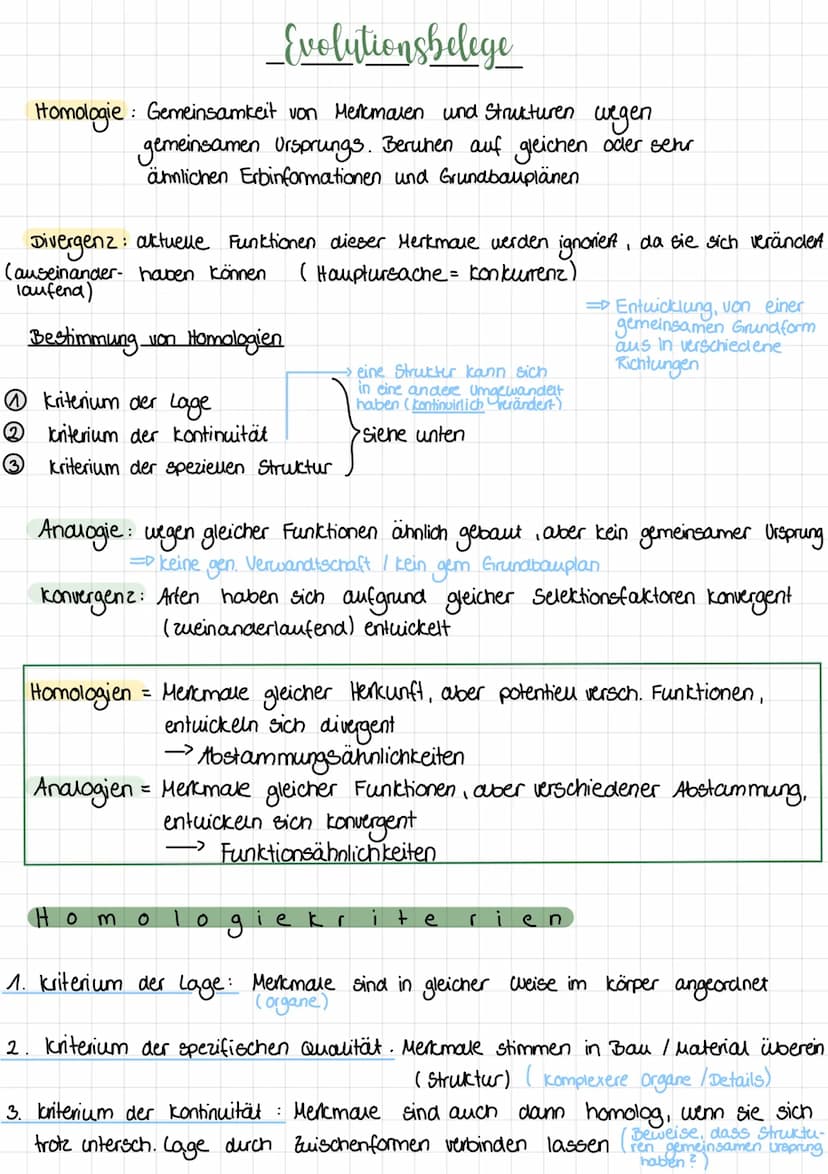 Evolutionsbelege
Homologie: Gemeinsamkeit von Merkmalen und Strukturen wegen
gemeinsamen Ursprungs. Beruhen auf gleichen oder sehr
ähnlichen Erbinformationen und Grundbauplänen
Divergenz: aktuelle Funktionen dieser Merkmale werden ignoriert, da sie sich verändert
(auseinander- haben können (Hauptursache = Konkurrenz)
laufend)
⇒ Entwicklung, von einer
gemeinsamen Grundform
aus in verschiedene
Richtungen
Bestimmung von Homologien
→ eine Struktur kann sich
in eine andere umgewandelt
haben (kontinuirlich verändert)
① Kriterium der Lage
② Kriterium der Kontinuität
siehe unten
③ Kriterium der speziellen Struktur
Analogie: wegen gleicher Funktionen ähnlich gebaut, aber kein gemeinsamer Ursprung
⇒ keine gen. Verwandtschaft / kein gem Grundbauplan
Konvergenz: Arten haben sich aufgrund gleicher Selektionsfaktoren konvergent
(zueinanderlaufend) entwickelt
Homologien = Merkmale gleicher Herkunft, aber potentiell versch. Funktionen,
entwickeln sich divergent
→ Abstammungsähnlichkeiten
Analogien = Merkmale gleicher Funktionen, aber verschiedener Abstammung,
entwickeln sich konvergent
→ Funktionsähnlichkeiten
Homologiekriterien
1. Kriterium der Lage: Merkmale sind in gleicher Weise im Körper angeordnet
(organe)
2. Kriterium der spezifischen Qualität. Merkmale stimmen in Bau / Material überein
(Struktur) (Komplexere Organe / Details)
3. Kriterium der Kontinuität: Merkmale sind auch dann homolog, wenn sie sich
trotz untersch. Lage durch Zwischenformen verbinden lassen (Beweise, dass Struktu-
ren gemeinsamen Ursprung
haben?)